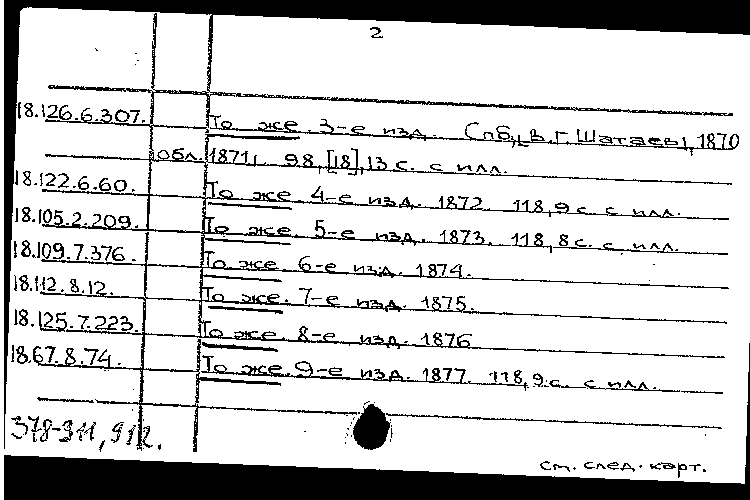 2
18.126.6.307. То же. 3-е изд. Спб., В.Г. Шатаев, 1870
[обл. 1871], 98, [18], 13 с. с илл.
18.122.6.60. То же. 4-е изд. 1872. 118,9 с. с илл.
18.105.2.209. То же. 5-е изд. 1873. 118,8 с. с илл.
18.109.7.376. То же. 6-е изд. 1874.
18.112.8.12. То же. 7-е изд. 1875.
18.125.7.223. То же. 8-е изд. 1876
18.67.8.74. То же. 9-е изд. 1877. 118,9 с. с илл.
378-311, 912.
см. след. карт.